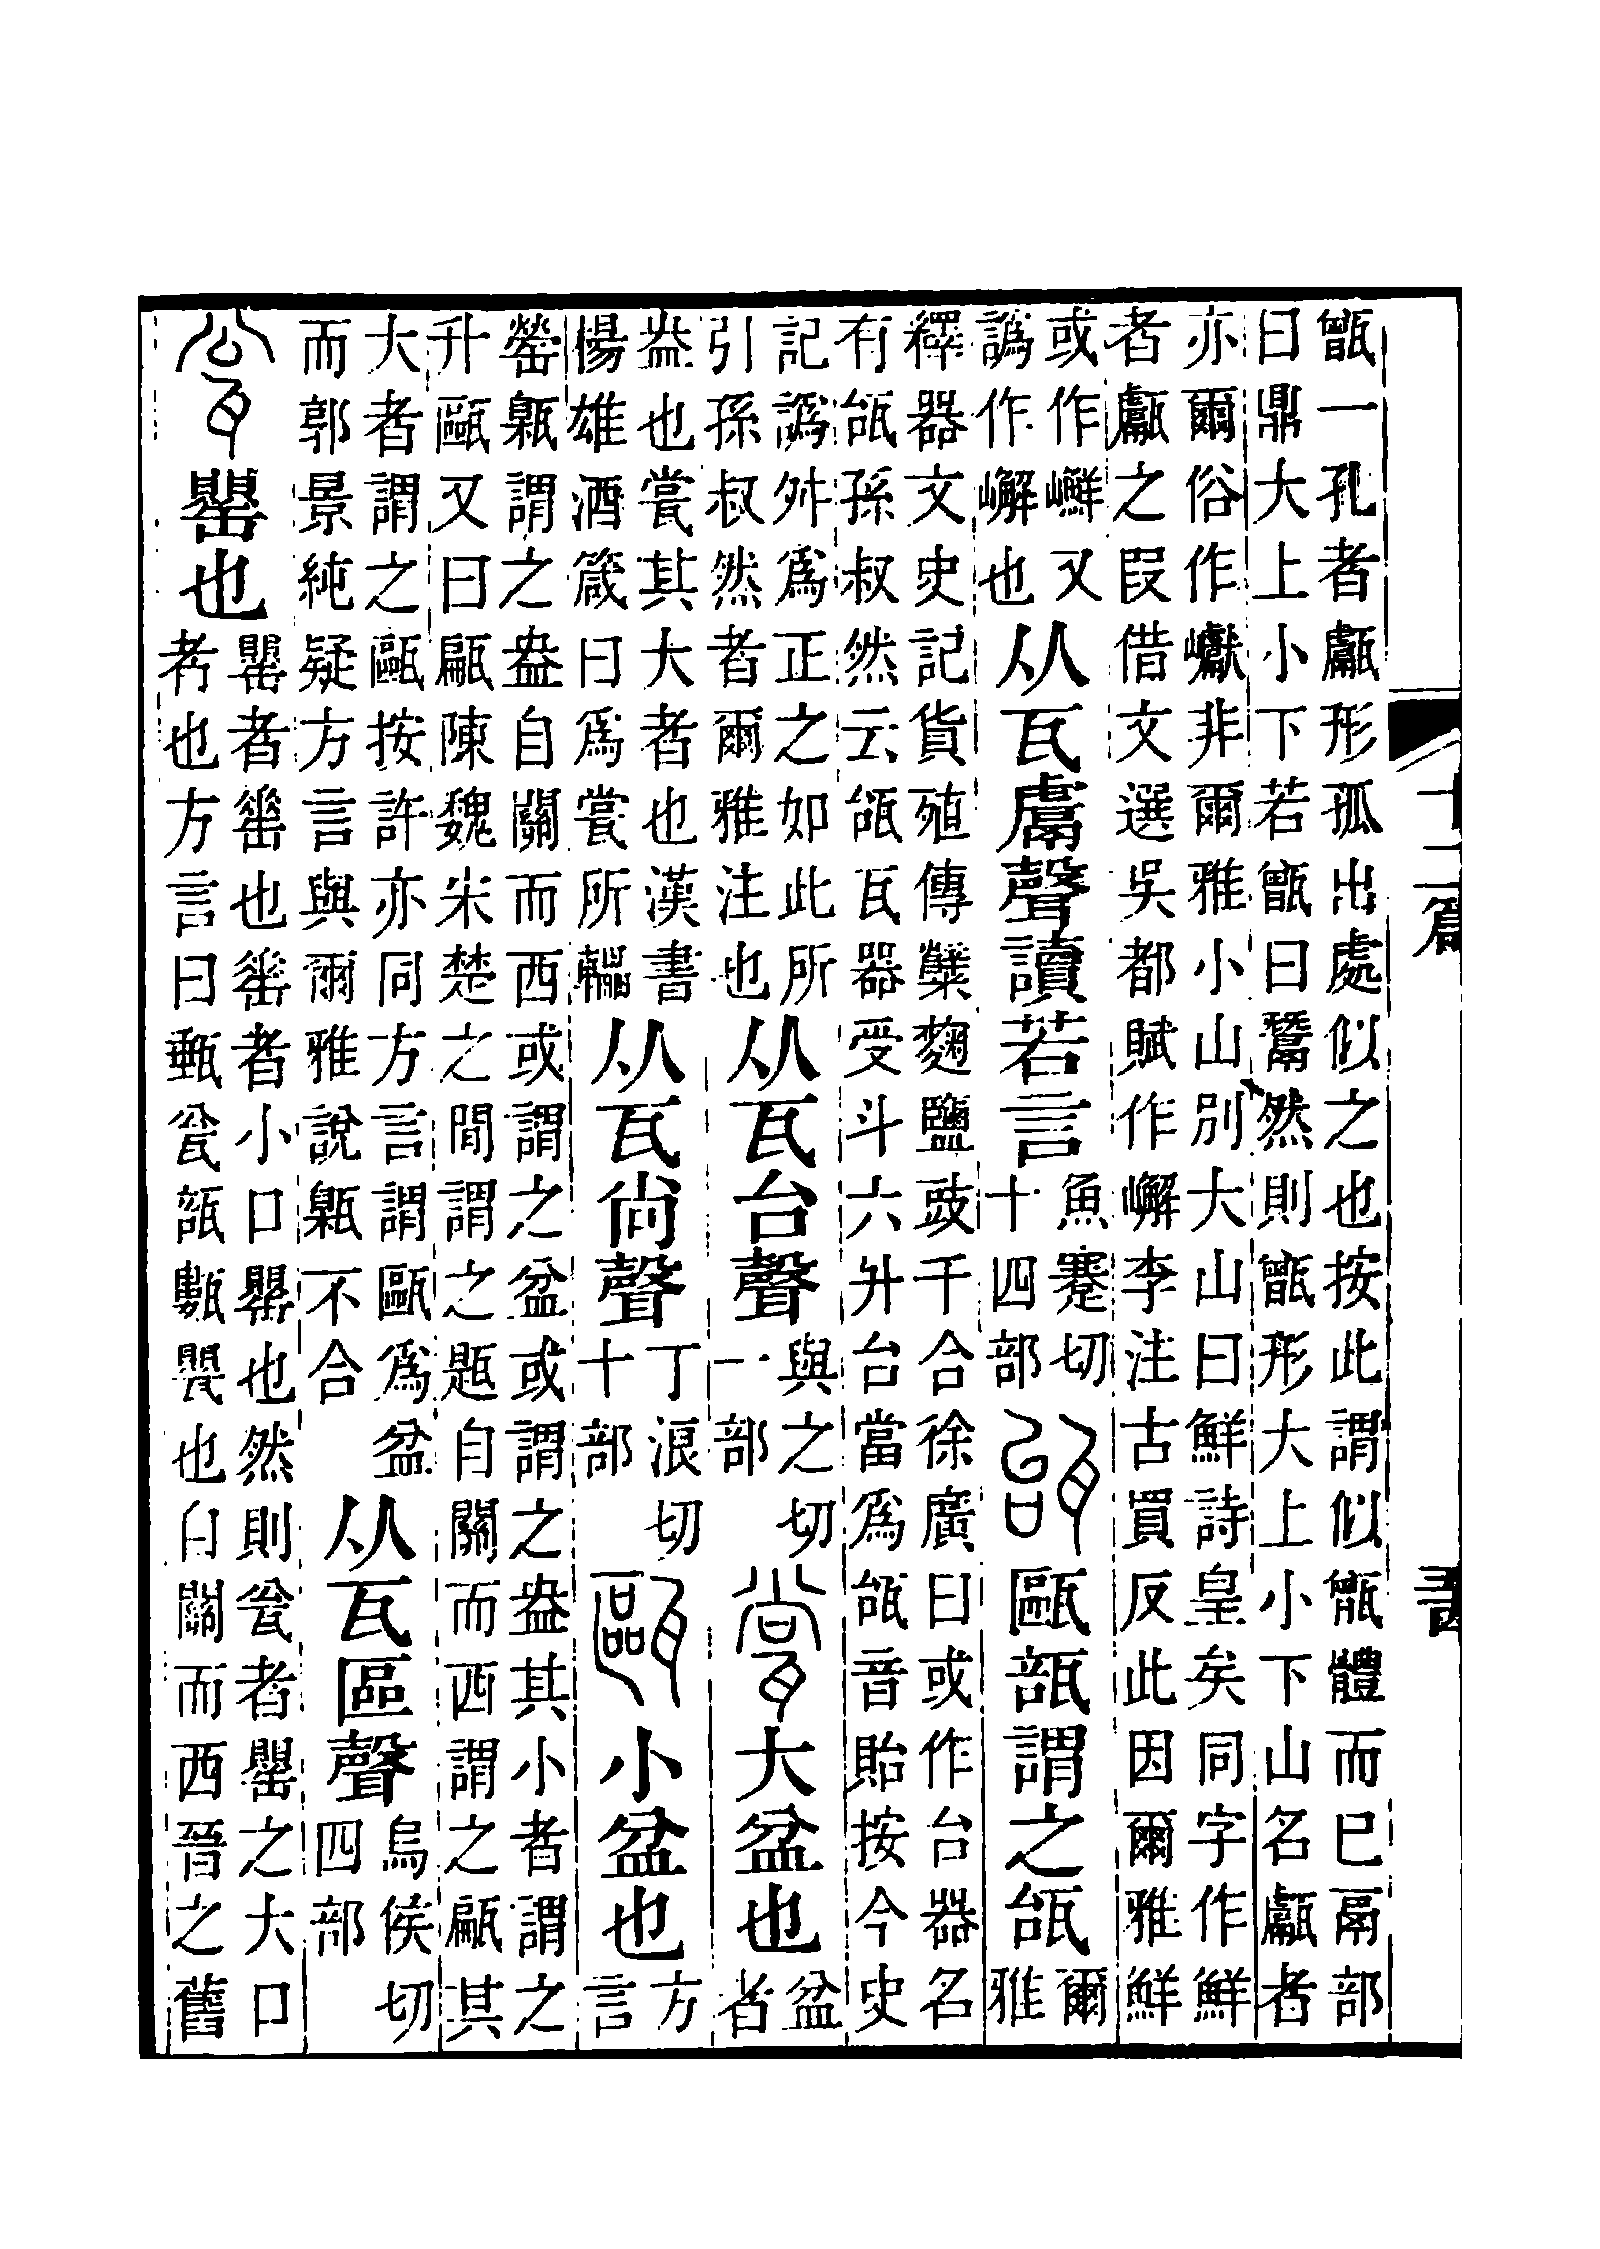 甑一孔者甗形孤出處似之也按此謂似甑體而已鬲部
曰鼎大上小下若甑曰鬵然則甑形大上小下山名甗者
亦爾俗作巘非爾雅小山別大山曰鮮詩皇矣同字作鮮
者甗之叚借文選吳都賦作嶰李注古買反此因爾雅鮮
或作𡾰又
譌作嶰也
从瓦鬳聲讀若言
魚蹇切
十四部
瓵
甌瓿謂之瓵
爾
雅
釋器文史記貨殖傳糱麴鹽豉千合徐廣曰或作台器名
有瓵孫叔然云瓵瓦器受斗六升台當爲瓵音貽按今史
記譌舛爲正之如此所
引孫叔然者爾雅注也
从瓦台聲
與之切
一部
瓽
大盆也
盆
者
盎也瓽其大者也漢書
楊雄酒箴曰爲瓽所轠
从瓦尚聲
丁浪切
十部
甌
小盆也
方
言
罃甈謂之盎自關而西或謂之盆或謂之盎其小者謂之
升甌又曰甂陳魏宋楚之間謂之㼵自關而西謂之甂其
大者謂之甌按許亦同方言謂甌爲盆
而郭景純疑方言與爾雅說甈不合
从瓦區聲
烏侯切
四部
瓮
罌也
罌者𦉈也𦉈者小口罌也然則瓮者罌之大口
者也方言曰甀瓮瓿甊甖也自關而西晉之舊
十二篇